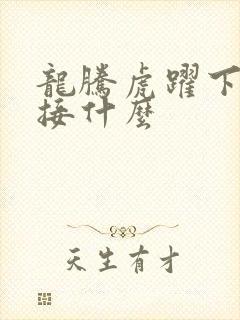 龍騰虎躍下
接什麼
天生有才